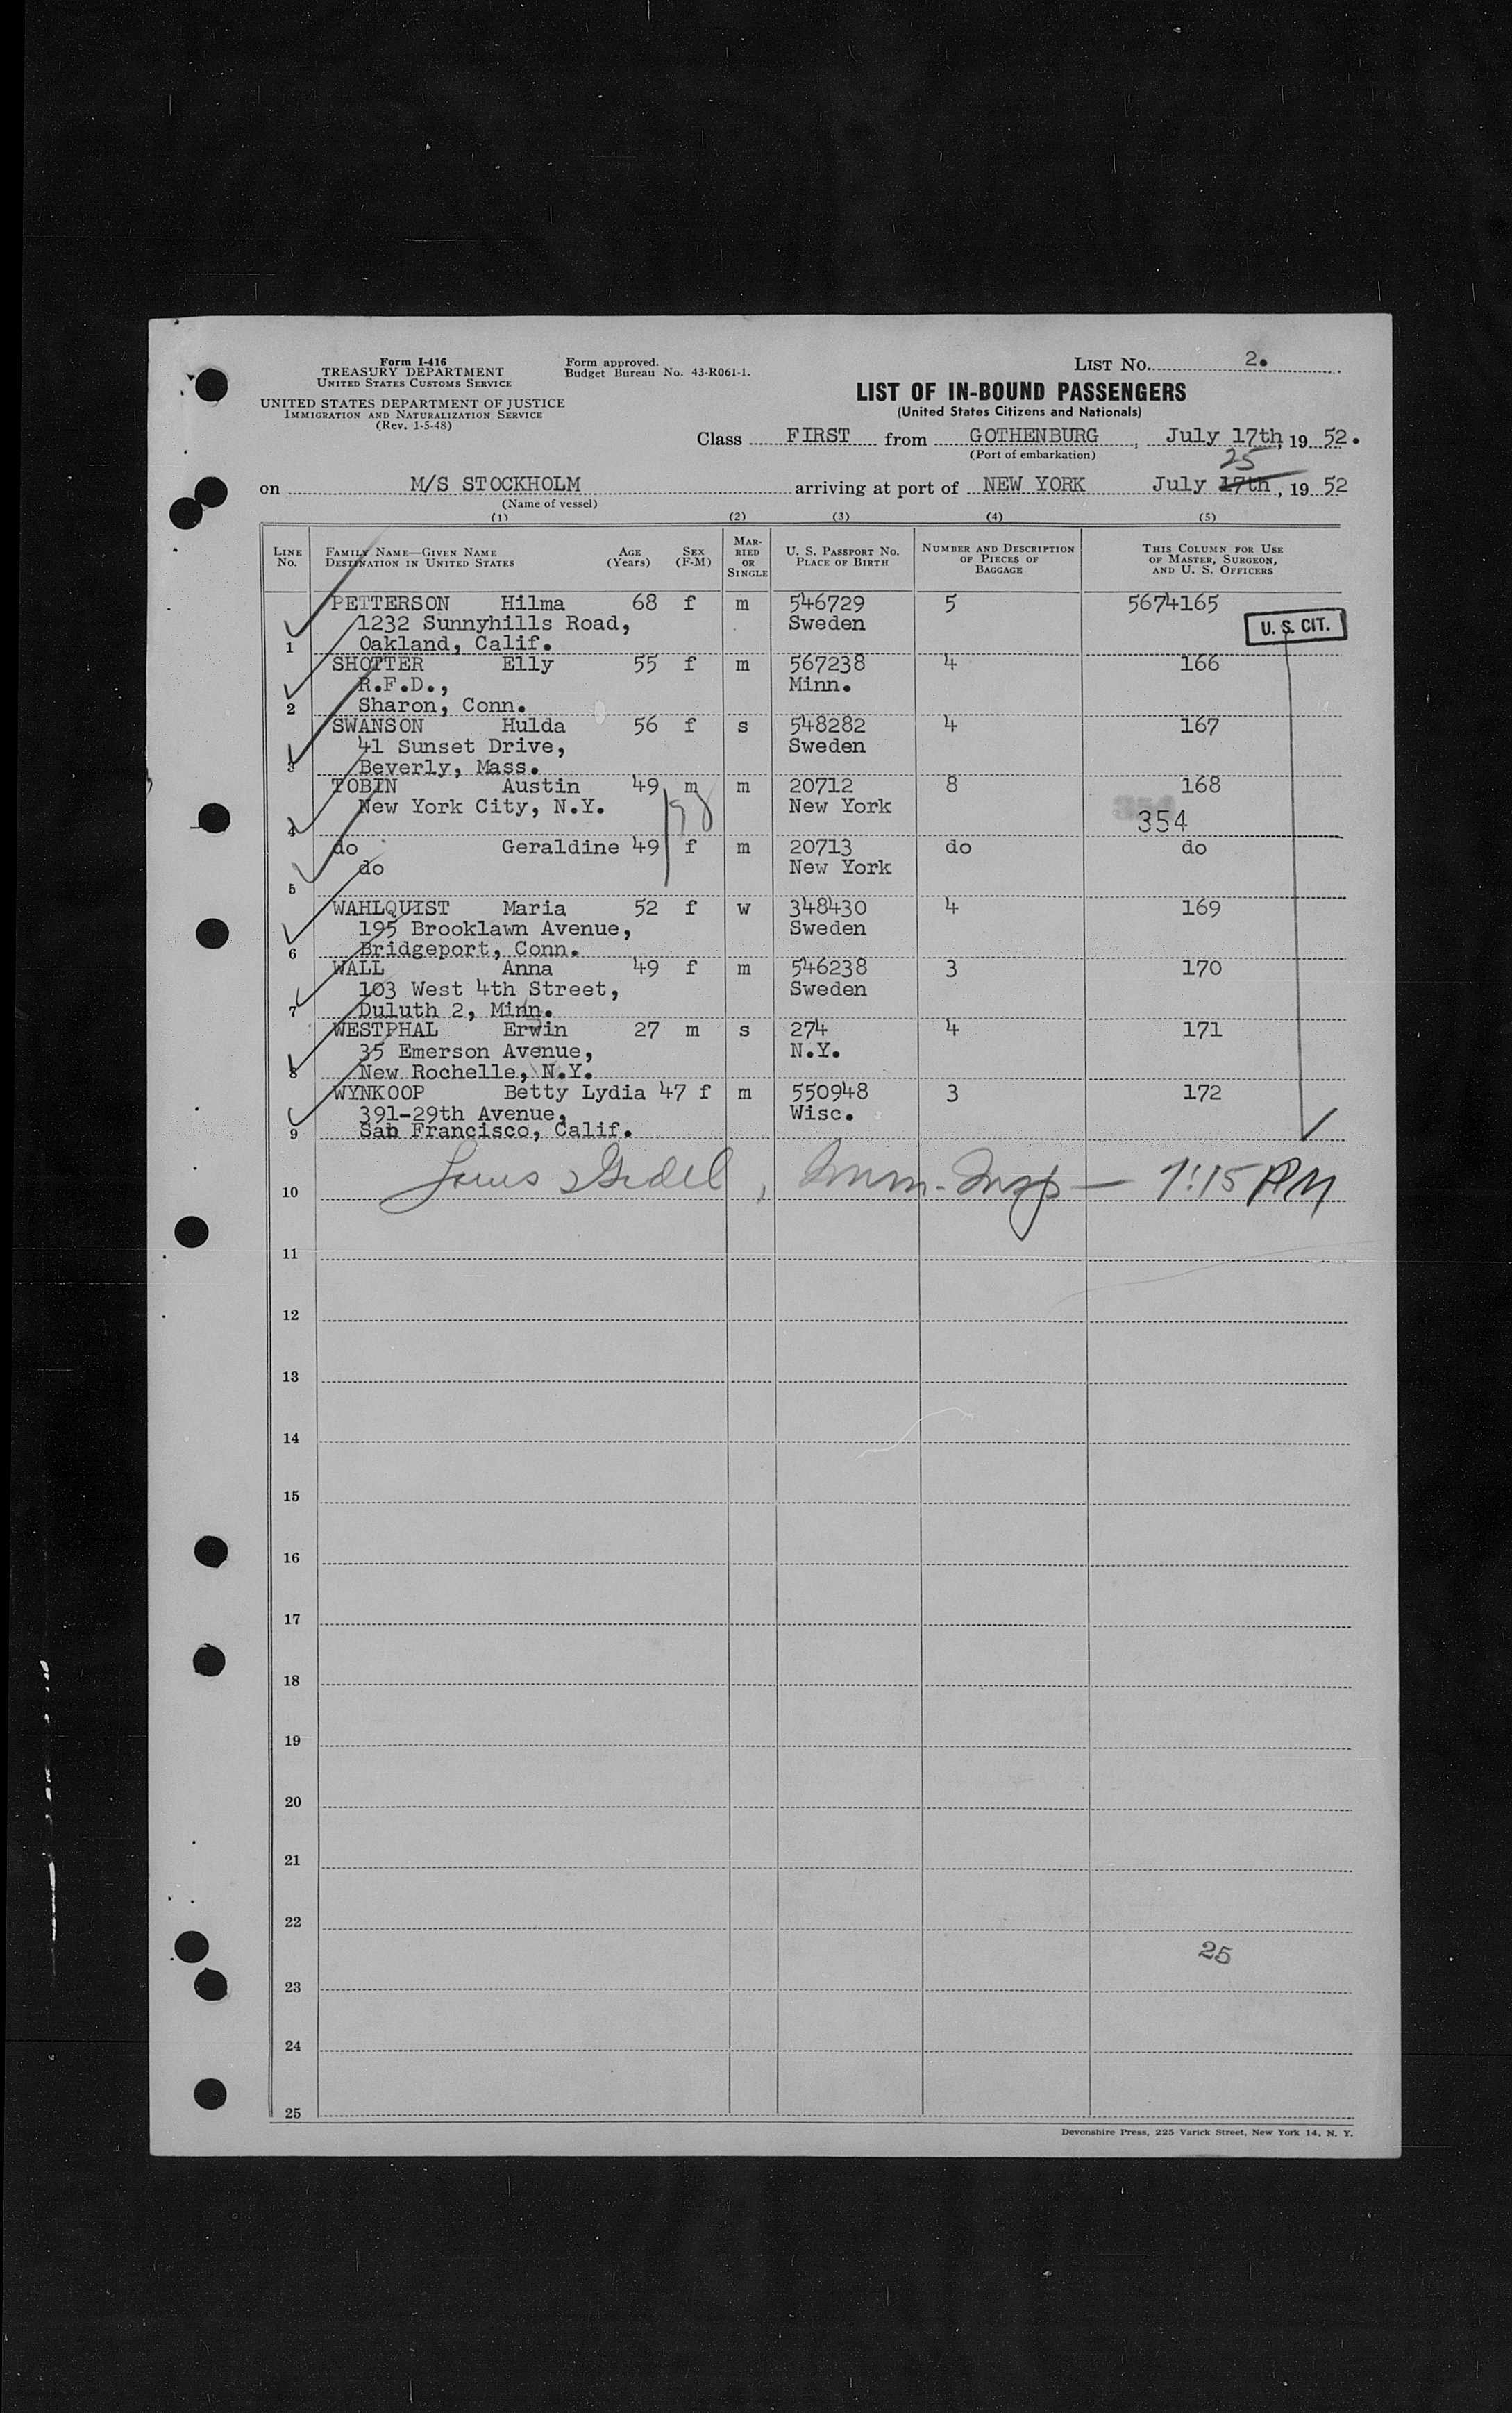 Form I-416
TREASURY DEPARTMENT
UNITED STATES CUSTOMS SERVICE
UNITED STATES DEPARTMENT OF JUSTICE
IMMIGRATION AND NATURALIZATION SERVICE
(Rev. 1-5-48)
Form approved.
Budget Bureau No. 43-R061-1.
LIST No. 2.
LIST OF IN-BOUND PASSENGERS
(United States Citizens and Nationals)
Class FIRST from GOTHENBURG, July 17th, 19 52.
(Port of embarkation)
25
on M/S STOCKHOLM arriving at port of NEW YORK July 17th, 19 52
(Name of vessel)
(1) (2) (3) (4) (5)
LINE No. FAMILY NAME—GIVEN NAME DESTINATION IN UNITED STATES AGE (Years) SEX (F-M) MARRIED OR SINGLE U. S. PASSPORT NO. PLACE OF BIRTH NUMBER AND DESCRIPTION OF PIECES OF BAGGAGE THIS COLUMN FOR USE OF MASTER, SURGEON, AND U. S. OFFICERS
PETTERSON Hilma 68 f m 546729 5 5674165
1232 Sunnyhills Road, Sweden U. S. CIT.
1 Oakland, Calif.
SHOTTER Elly 55 f m 567238 4 166
R.F.D., Minn.
2 Sharon, Conn.
SWANSON Hulda 56 f s 548282 4 167
41 Sunset Drive, Sweden
3 Beverly, Mass.
TOBIN Austin 49 m m 20712 8 168
New York City, N.Y. New York
4 354
do Geraldine 49 f m 20713 do do
do New York
5
WAHLQUIST Maria 52 f w 348430 4 169
195 Brooklawn Avenue, Sweden
6 Bridgeport, Conn.
WALL Anna 49 f m 546238 3 170
103 West 4th Street, Sweden
7 Duluth 2, Minn.
WESTPHAL Erwin 27 m s 274 4 171
35 Emerson Avenue, N.Y.
8 New Rochelle, N.Y.
WYNKOOP Betty Lydia 47 f m 550948 3 172
391-29th Avenue, Wisc.
9 San Francisco, Calif.
10 Imm. Insp — 1:15 PM
11
12
13
14
15
16
17
18
19
20
21
22
25
23
24
25
Devonshire Press, 225 Varick Street, New York 14, N. Y.